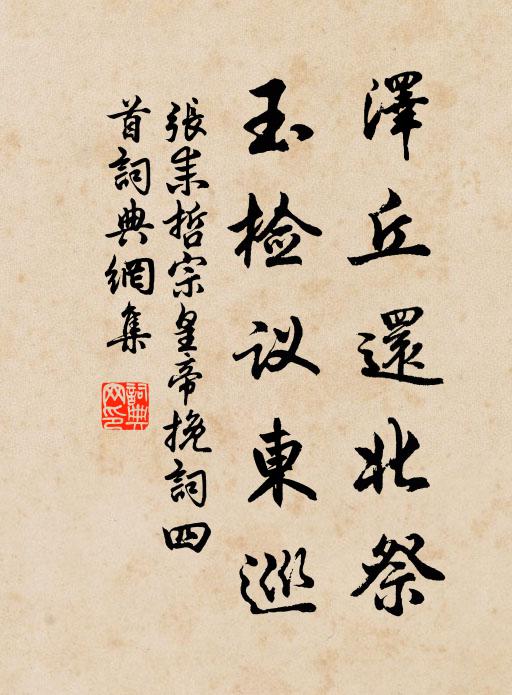 澤丘還北祭
玉檢议東巡
張耒哲宗皇帝挽詞四
首詞典網集
詞典
网印